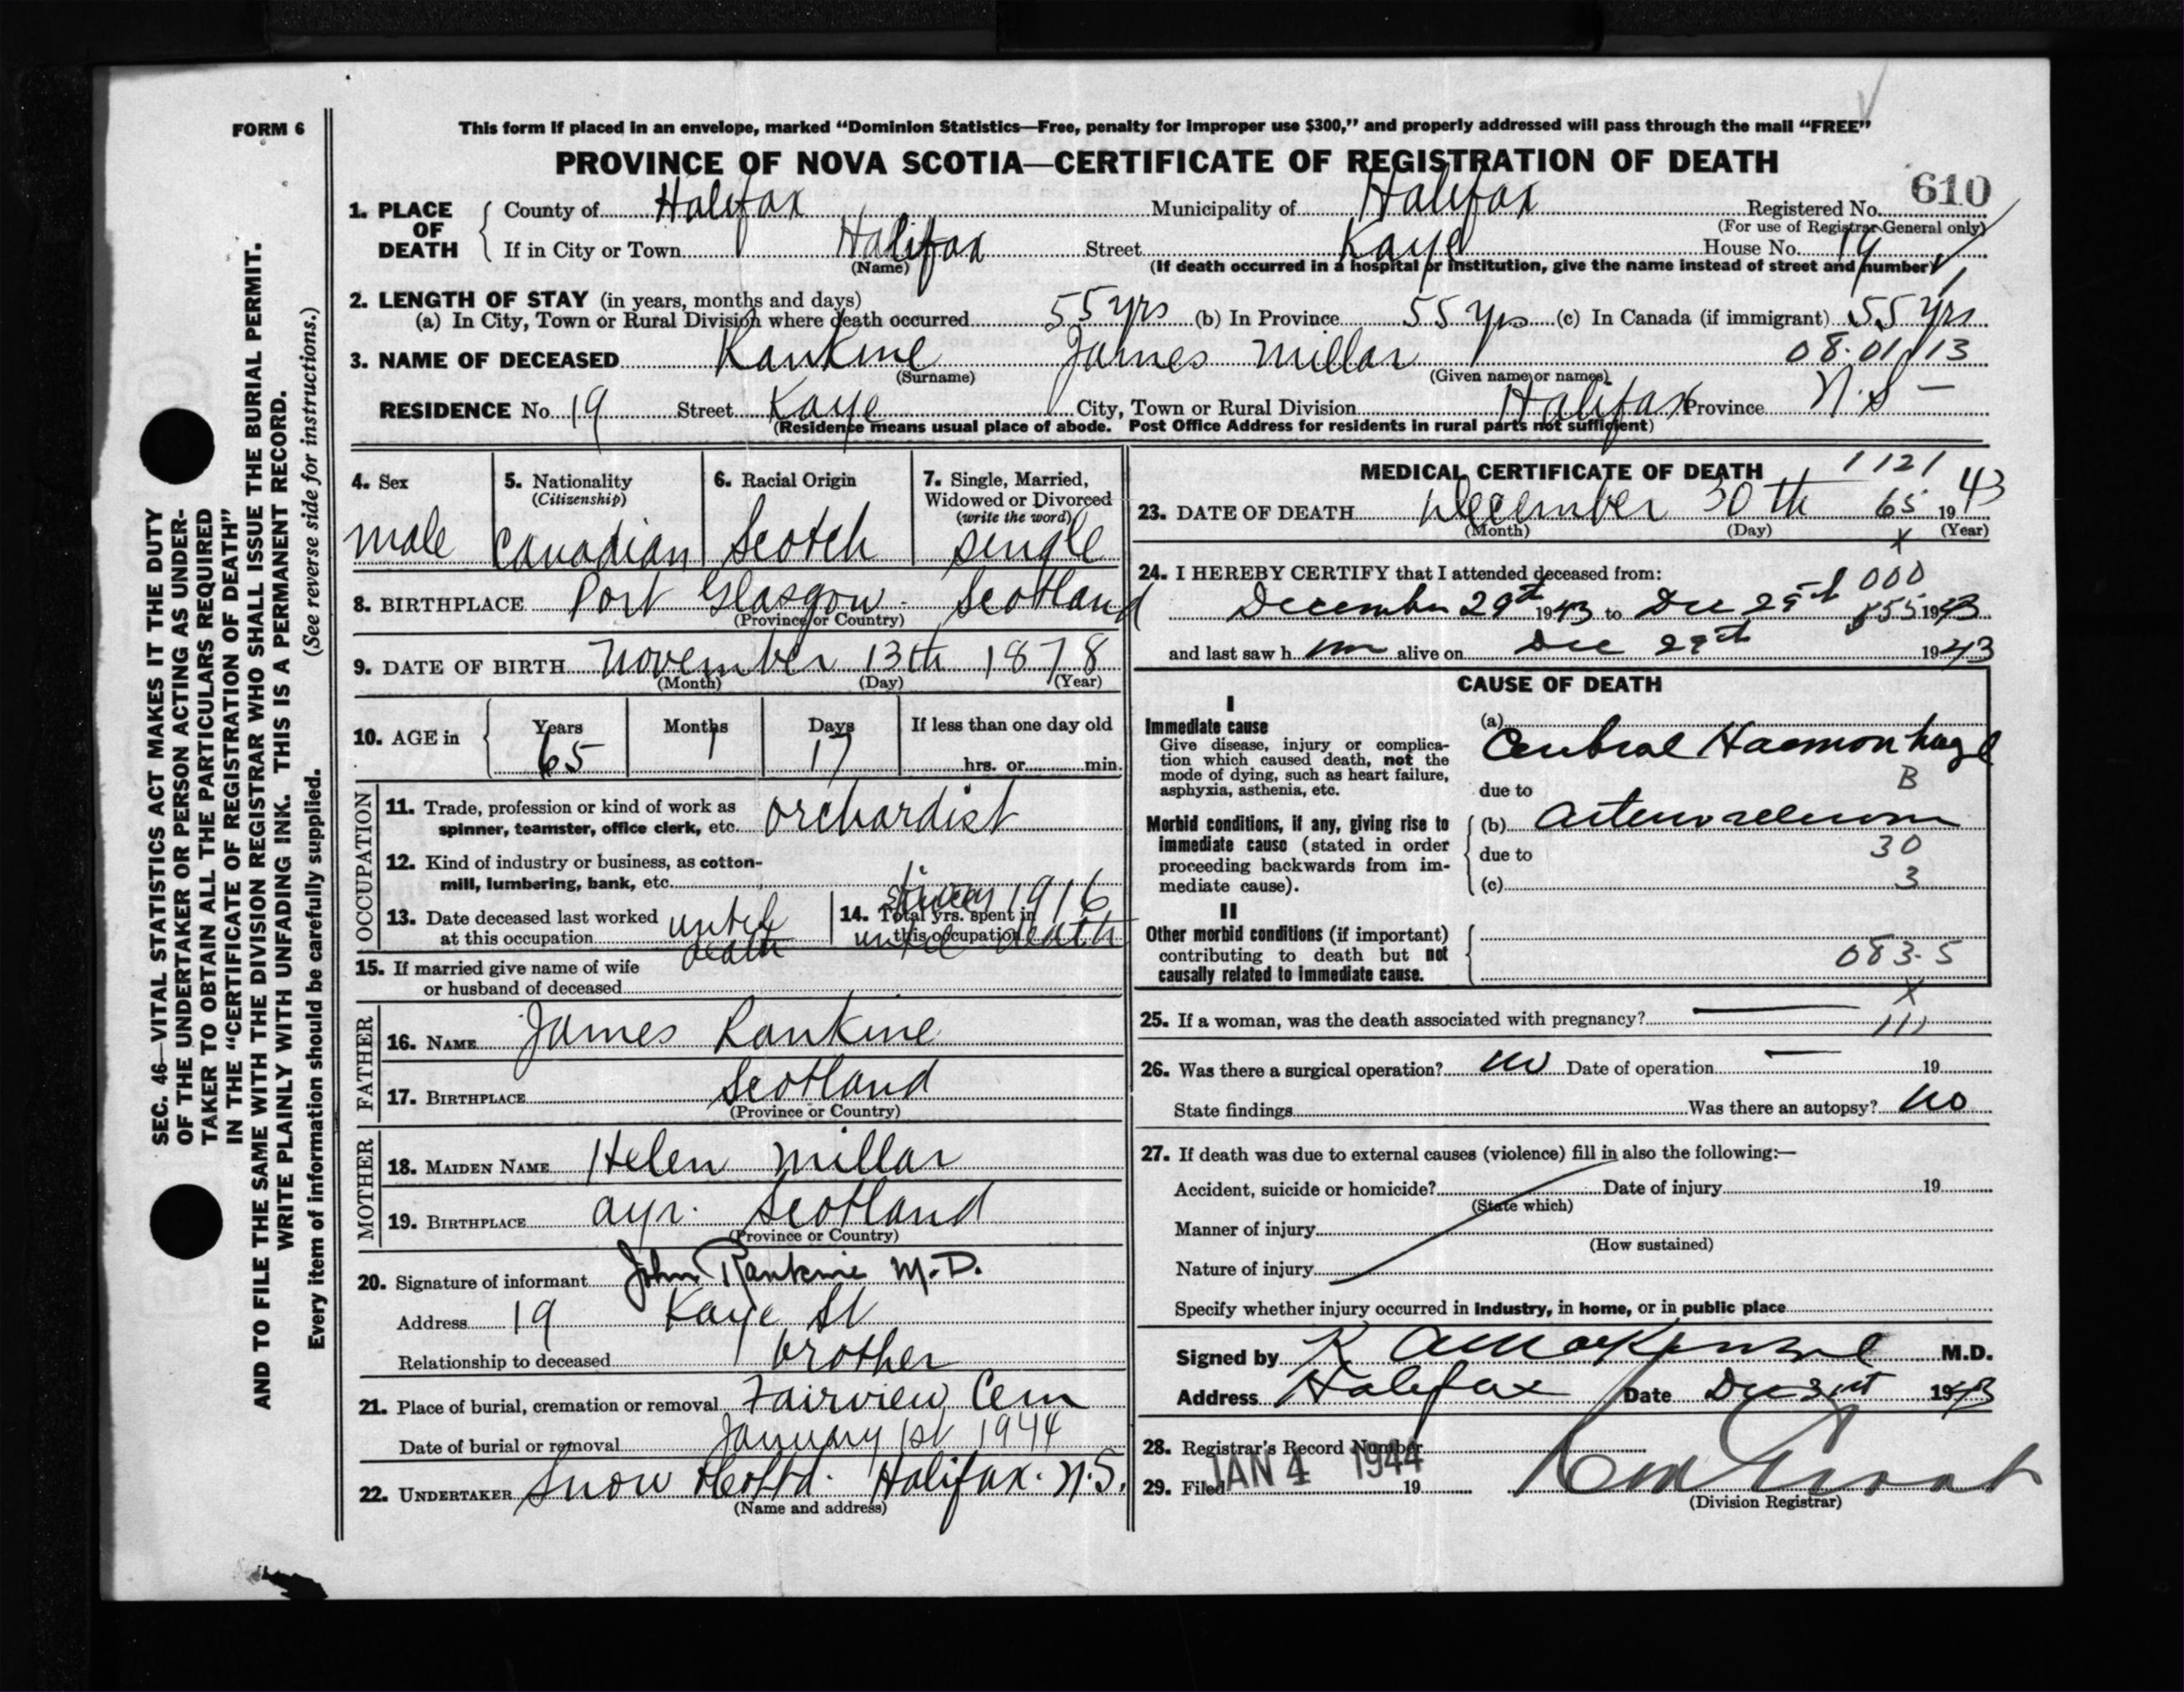 FORM 6
This form if placed in an envelope, marked "Dominion Statistics—Free, penalty for improper use $300," and properly addressed will pass through the mail "FREE"
PROVINCE OF NOVA SCOTIA—CERTIFICATE OF REGISTRATION OF DEATH
610
1. PLACE OF DEATH County of Halifax Municipality of Halifax Registered No.
(For use of Registrar General only)
If in City or Town Halifax Street Kaye House No. 19
(Name) (If death occurred in a hospital or institution, give the name instead of street and number)
2. LENGTH OF STAY (in years, months and days)
(a) In City, Town or Rural Division where death occurred 55 yrs (b) In Province 55 yrs (c) In Canada (if immigrant) 55 yrs
3. NAME OF DECEASED Rankine James Millar 08.01.13
(Surname) (Given name or names)
RESIDENCE No. 19 Street Kaye City, Town or Rural Division Halifax Province N.S—
(Residence means usual place of abode. Post Office Address for residents in rural parts not sufficient)
4. Sex male
5. Nationality (Citizenship) Canadian
6. Racial Origin Scotch
7. Single, Married, Widowed or Divorced (write the word) single
8. BIRTHPLACE Port Glasgow - Scotland
(Province or Country)
9. DATE OF BIRTH November 13th 1878
(Month) (Day) (Year)
10. AGE in Years Months Days If less than one day old
65 1 17 hrs. or min.
OCCUPATION
11. Trade, profession or kind of work as spinner, teamster, office clerk, etc. Orchardist
12. Kind of industry or business, as cotton-mill, lumbering, bank, etc.
13. Date deceased last worked at this occupation until death
14. Total yrs. spent in this occupation since 1916 until death
15. If married give name of wife or husband of deceased
FATHER
16. NAME James Rankine
17. BIRTHPLACE Scotland
(Province or Country)
MOTHER
18. MAIDEN NAME Helen Millar
19. BIRTHPLACE Ayr. Scotland
(Province or Country)
20. Signature of informant John Rankine M.D.
Address 19 Kaye St
Relationship to deceased brother
21. Place of burial, cremation or removal Fairview Cem
Date of burial or removal January 1st 1944
22. UNDERTAKER Snow & Co Ltd. Halifax. N.S.
(Name and address)
MEDICAL CERTIFICATE OF DEATH
1121
23. DATE OF DEATH December 30th 65 1943
(Month) (Day) (Year)
x
24. I HEREBY CERTIFY that I attended deceased from:
000
December 29th 1943 to Dec 29th 855 1943
and last saw h im alive on Dec 29th 1943
CAUSE OF DEATH
I
Immediate cause
Give disease, injury or complication which caused death, not the mode of dying, such as heart failure, asphyxia, asthenia, etc.
(a) Cerebral Haemorrhage
B
due to
Morbid conditions, if any, giving rise to immediate cause (stated in order proceeding backwards from immediate cause).
(b) Arteriosclerosis
due to 30
(c) 3
II
Other morbid conditions (if important) contributing to death but not causally related to immediate cause.
083.5
x
25. If a woman, was the death associated with pregnancy? — 111
26. Was there a surgical operation? no Date of operation — 19
State findings Was there an autopsy? no
27. If death was due to external causes (violence) fill in also the following:—
Accident, suicide or homicide? Date of injury 19
(State which)
Manner of injury
(How sustained)
Nature of injury
Specify whether injury occurred in industry, in home, or in public place
Signed by K A MacKenzie M.D.
Address Halifax Date Dec 31st 1943
28. Registrar's Record Number
29. Filed JAN 4 1944 19
(Division Registrar)
SEC. 46—VITAL STATISTICS ACT MAKES IT THE DUTY
OF THE UNDERTAKER OR PERSON ACTING AS UNDER-
TAKER TO OBTAIN ALL THE PARTICULARS REQUIRED
IN THE "CERTIFICATE OF REGISTRATION OF DEATH"
AND TO FILE THE SAME WITH THE DIVISION REGISTRAR WHO SHALL ISSUE THE BURIAL PERMIT.
WRITE PLAINLY WITH UNFADING INK. THIS IS A PERMANENT RECORD.
Every item of information should be carefully supplied. (See reverse side for instructions.)